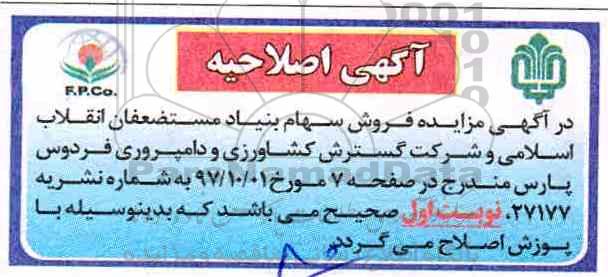 آگهی اصلاحیه
F.P.Co.
در آگهی مزایده فروش سهام بنیاد مستضعفان انقلاب
اسلامی و شرکت گسترش کشاورزی و دامپروری فردوس
پارس مندرج در صفحه ۷ مورخ ۹۷/۱۰/۰۱ به شماره نشریه
۲۷۱۷۷، نوبت اول صحیح می باشد که بدینوسیله با
پوزش اصلاح می گردد.